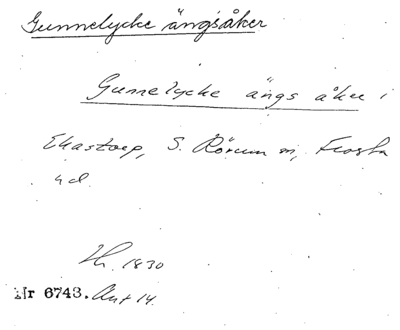 Gunnelycke ängsåker
Gunnelycke ängs åker i
Ekastorp, S. Rörum sn, Frosta
hd.
Lh. 1830
Nr 6743. Akt 14.